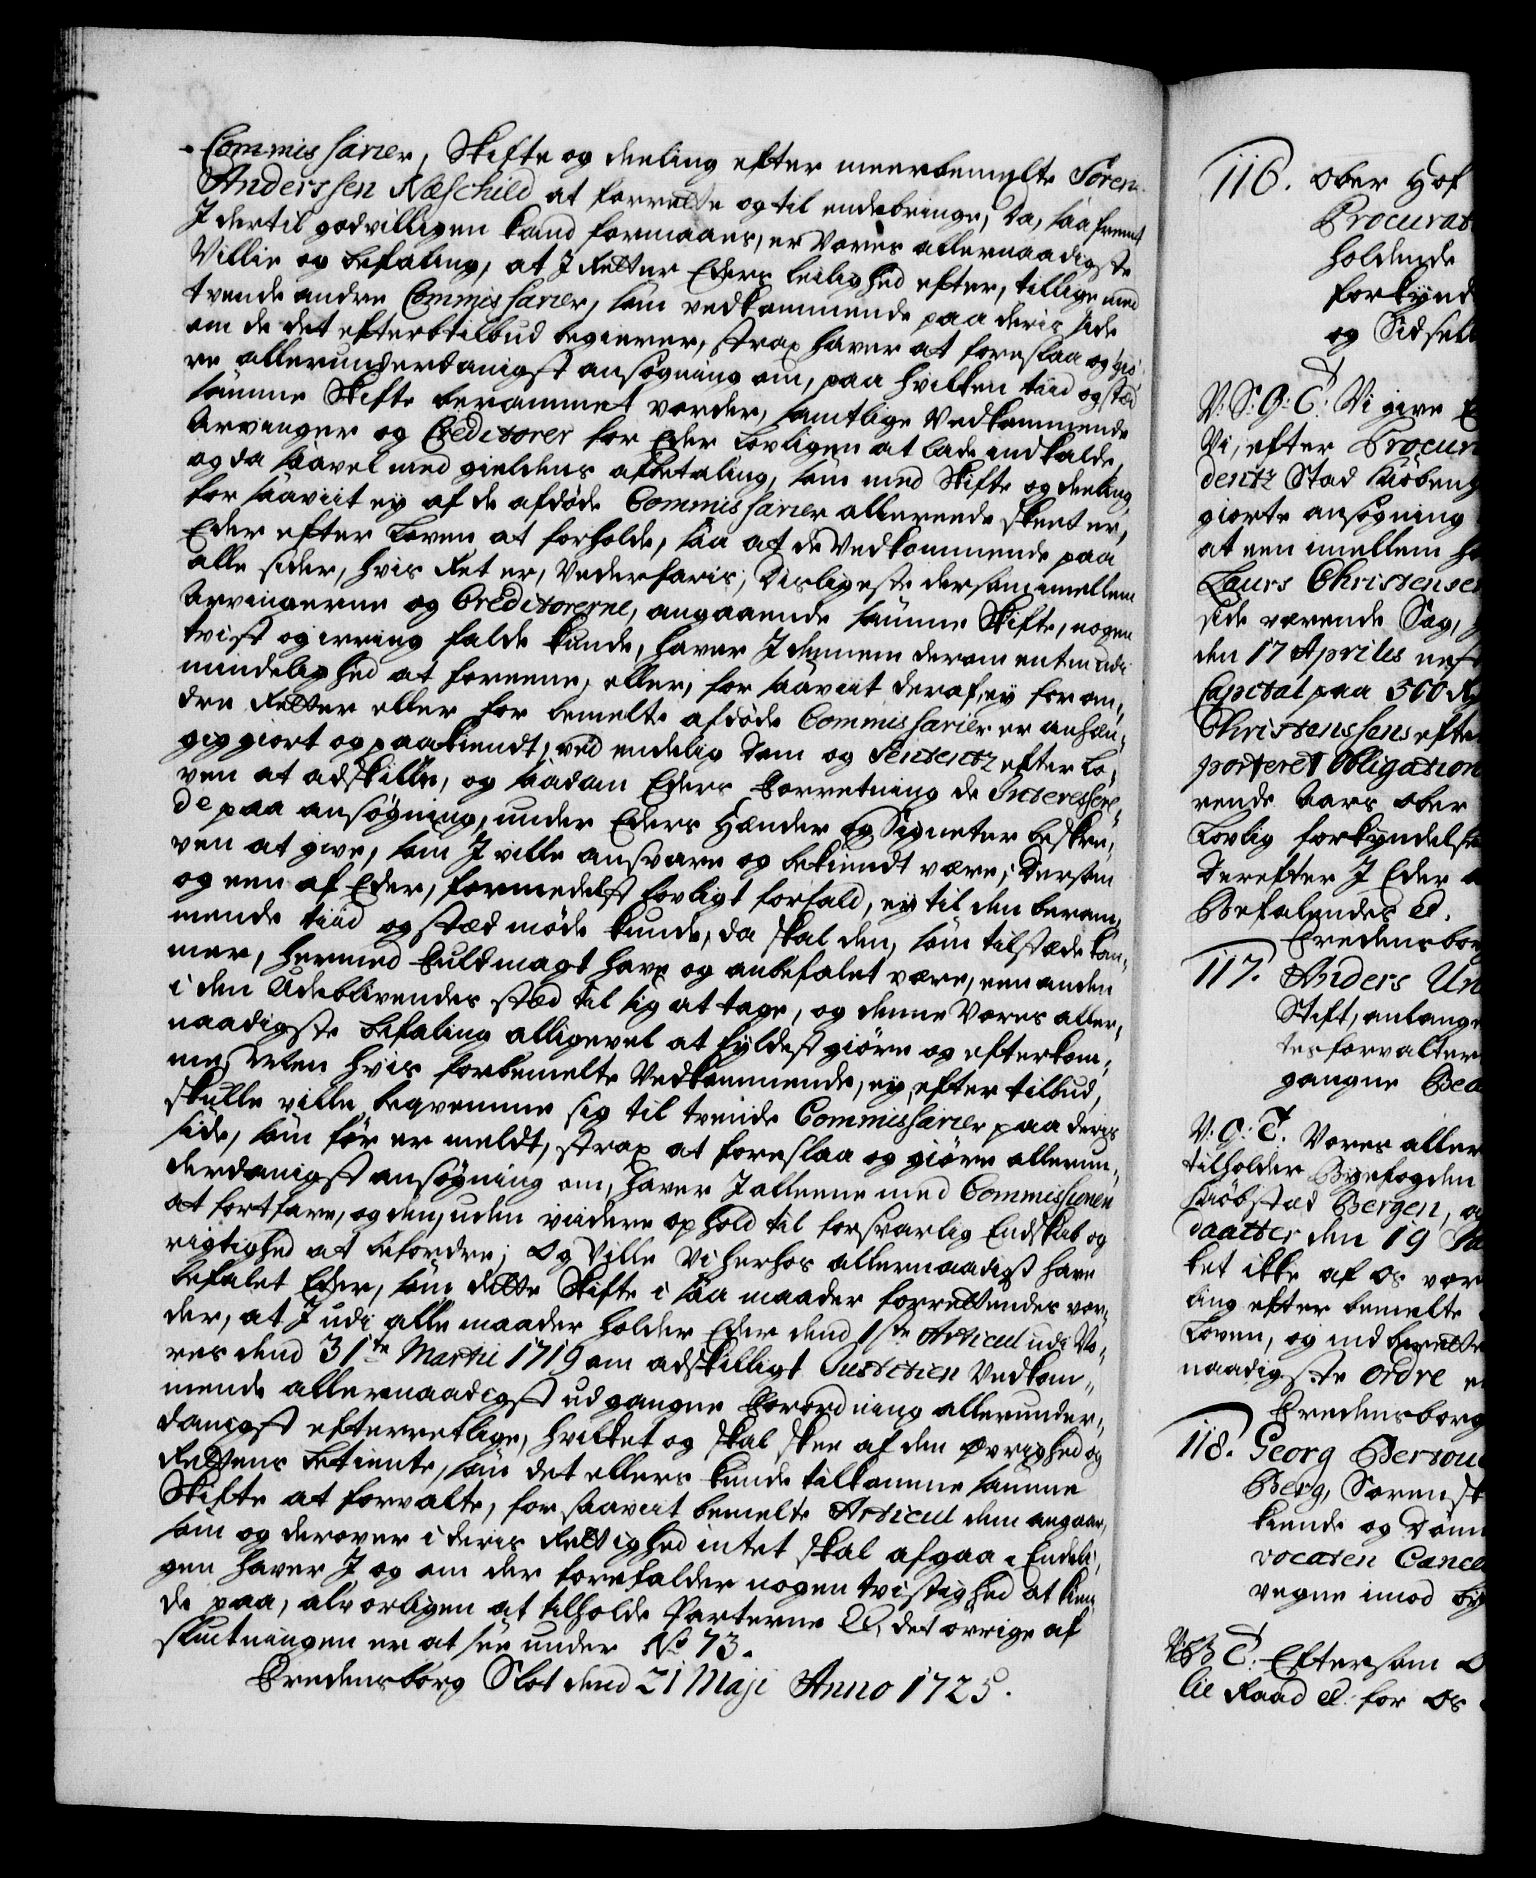 Commissarier, Skifte og deeling efter meerbemelte Søren
Anderssen Næschild at forrette og til endebringe, Da, saafremt
I dertil godvilligen kand formaaes, er Vores allernaadigste
Villie og befaling, at I retter Eders leilighed efter, tillige med
tvende andre Commissarier, som vedkommende paa deris side
om de det efter tilbud begierer, strax haver at foreslaa og giø¬
re allerunderdanigst ansøgning om, paa hvilken tiid og stæd
samme Skifte berammet vorder, samtlige Vedkommende
Arvinger og Creditorer for Eder lovligen at lade indkalde,
og da saavel med gieldens afbetaling, som med Skifte og deeling
for saaviit ey af de afdøde Commissarier allereede skeet er,
Eder efter Loven at forholde, saa at de Vedkommende paa
alle sider, hvis Ret er, Vederfaris; Disligeste dersom imellem
Arvingerne og Creditorerne, angaaende samme Skifte, nogen
tvist og irring falde kunde, haver I dennem derom enten udi
mindelighed at foreene, eller, for saaviit deraf, ey for an¬
dre Retter eller for bemelte afdøde Commissarier er anhæn¬
gig giort og paakiendt, ved endelig Dom og Sententz efter Lo¬
ven at adskille, og saadan Eders Forretning de Interessere¬
de paa ansøgning, under Eders Hænder og Signeter beskre¬
ven at give, som I ville ansvare og bekiendt være; Dersom
og een af Eder, formedelst lovligt forfald, ey til den beram¬
mende tiid og stæd møde kunde, da skal den, som tilstæde kom¬
mer, hermed Fuldmagt have og anbefalet være, een anden
i den Udeblivendes stæd til sig at tage, og denne Vores aller¬
naadigste befaling alligevel at fyldestgiøre og efterkom¬
me, Men hvis forbemelte Vedkommende, ey, efter tilbud,
skulle ville beqvemme sig til tvende Commissarier paa deris
side, som før er meldt, strax at foreslaa og giøre allerun¬
derdanigst ansøgning om, haver I alleene med Commissionen
at fortfare, og den, uden viidere ophold til forsvarlig Endskab og
rigtighed at befordre; Og Ville Vi herhos allernaadigst have
befalet Eder, som dette Skifte i saa maader forrettendes vor¬
der, at I udi alle maader holder Eder dend 1ste Articul udi Vo¬
res dend 31te Martii 1719 om adskilligt Justitien Vedkom¬
mende allernaadigst udgangne Forordning allerunder¬
danigst efterretlige, hvilket og skal skee af den øvrighed og
Rettens betiente, som det ellers kunde tilkomme samme
Skifte at forvalte, forsaaviit bemelte Articul dem angaar,
som og derover i deris Rettighed intet skal afgaa. Endeli¬
gen haver I og om der forefalder nogen tvistighed at kien¬
de paa, alvorligen at tilholde Parterne &c, det øvrige af
slutningen er at see under No 73.
Fredensborg Slot dend 21 Maji Anno 1725.
116. Ober Hof
Procurat
holdende
forkynd
og Sidsell
V: S: G: T: Vi give
Vi, efter Procur
dentz Stad Kiøbenh
giorte ansøgning
at een imellem
Laurs Christensen
side værende Sag,
den 17 Aprilis nest
Capital paa 500 R
Christenssens efter
porteret Obligation
rende Aars, ober
Lovlig forkyndelse
Derefter I Eder
Befalendes &.
Fredensbor
117. Anders Un
Stift, anlange
tesforvalter
gangne Be
V: G: T: Vores aller
tilholder Byefogden
Kiøbstad Bergen, og
daatter den 19
ket ikke af os vor
ling efter bemelte
Loven, og indberette
naadigste ordre
Fredensborg
118. Georg Bertou
Berg, Sorensk
kiende og Døm
vocaten Cance
vegne imod
T: Eftersom
lie Raad &. for Os